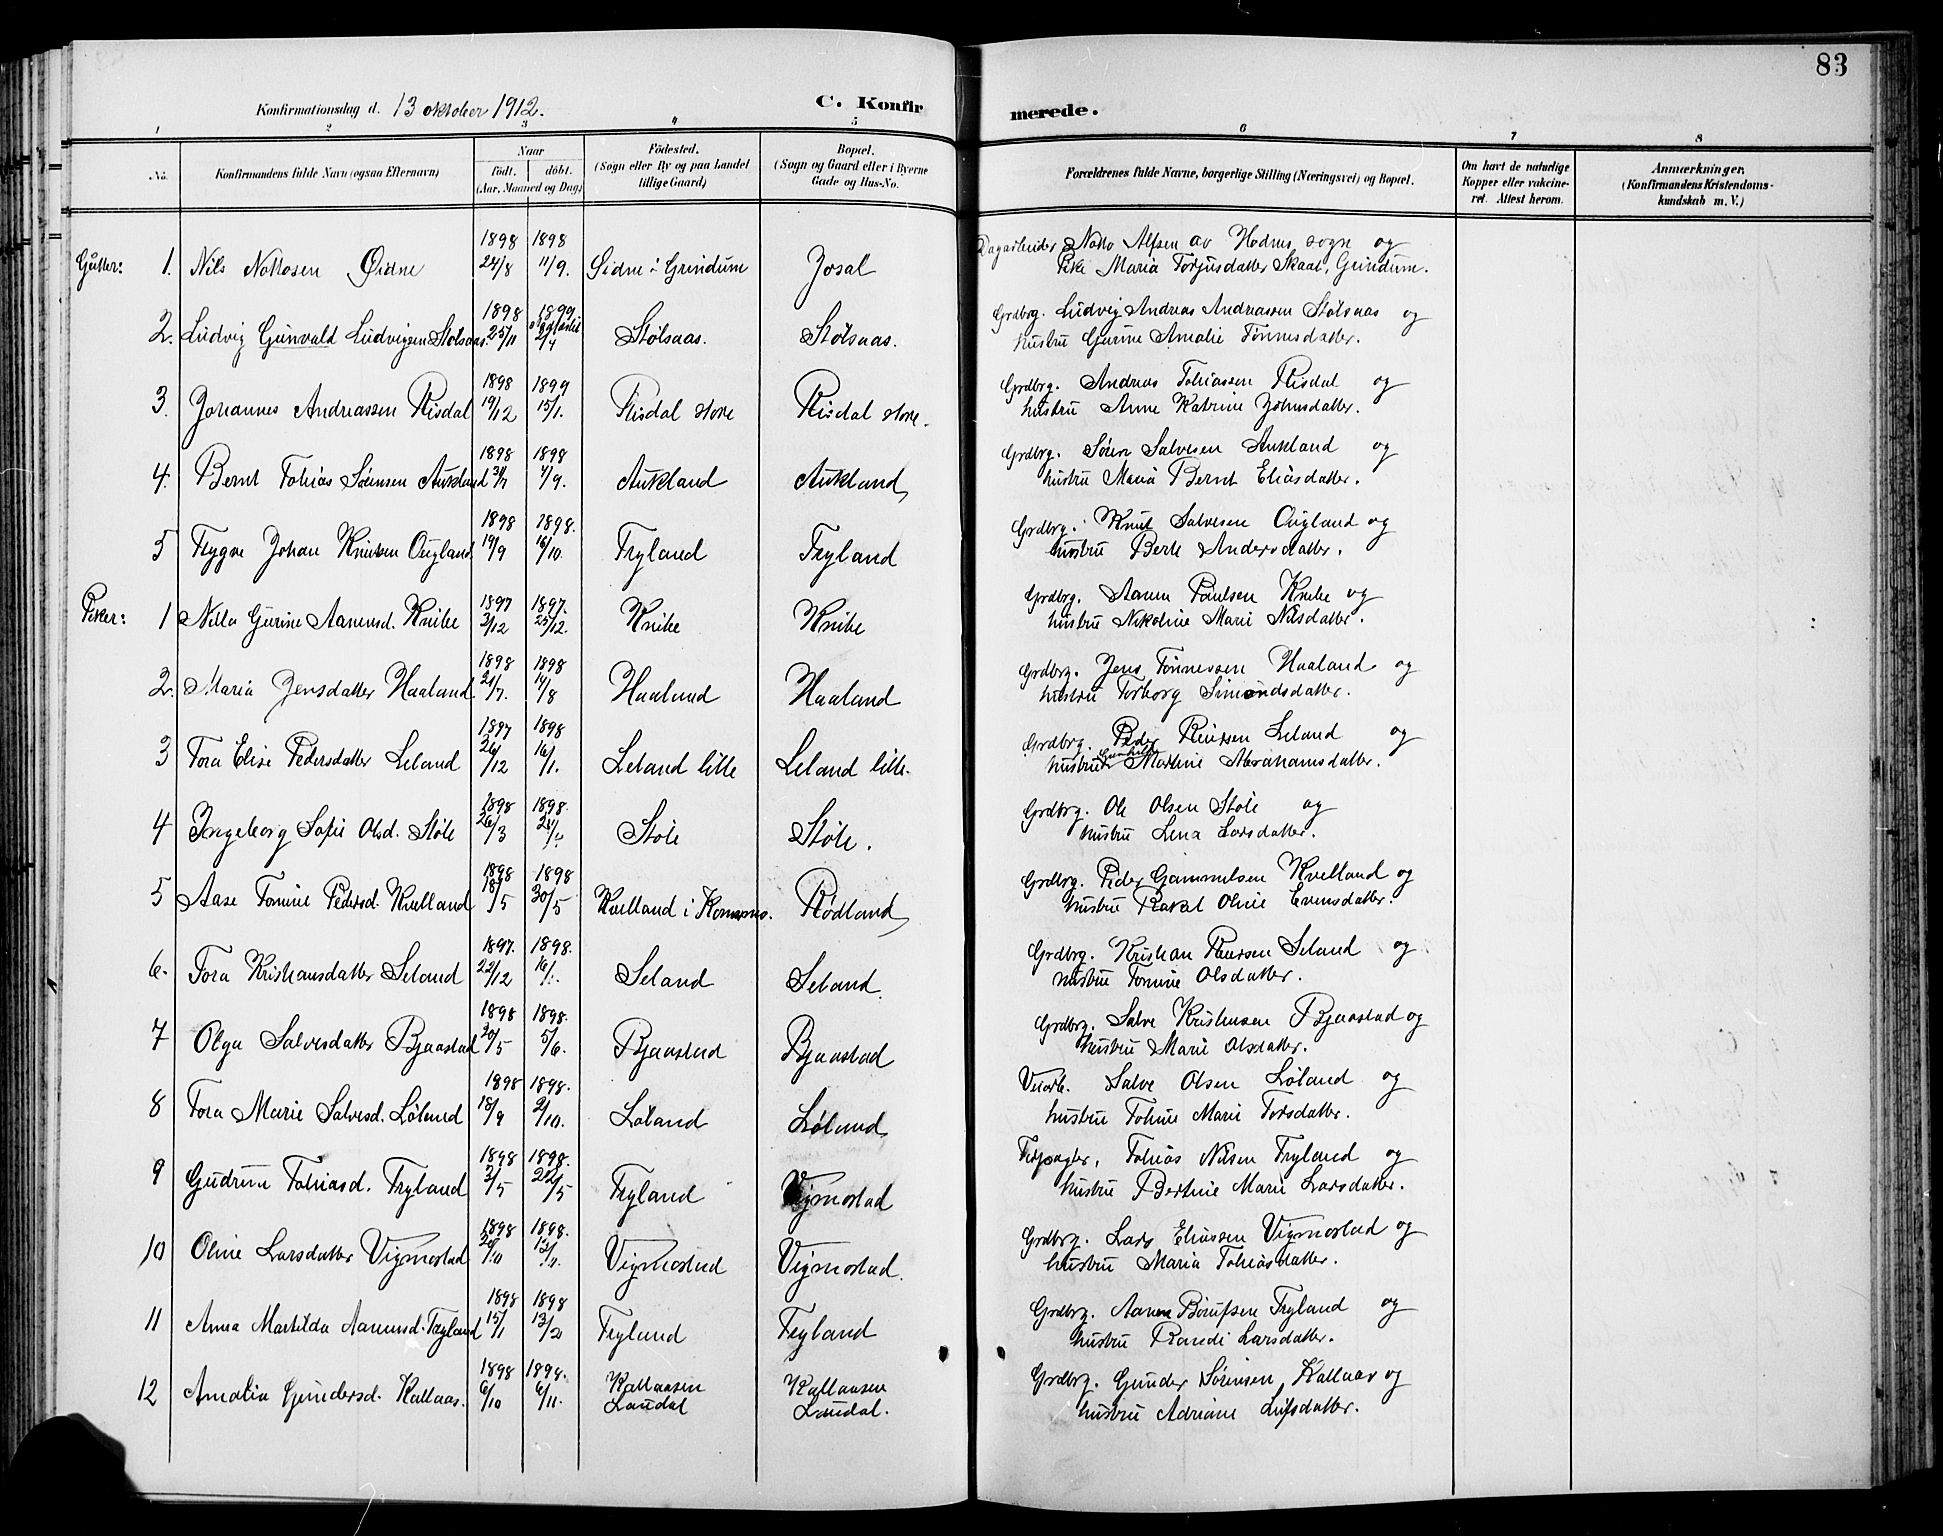 83
Konfirmationsdag d. 13 oktober 1912.
C. Konfirmerede.
1 2 3 4 5 6 7 8
No.
Konfirmandens fulde Navn (ogsaa Efternavn)
Naar
födt. döbt.
(Aar, Maaned og Dag)
Födested.
(Sogn eller By og paa Landet
tillige Gaard)
Bopæl.
(Sogn og Gaard eller i Byerne
Gade og Hus-No.
Forældrenes fulde Navne, borgerlige Stilling (Næringsvei) og Bopæl.
Om havt de naturlige
Kopper eller vakcine-
ret. Attest herom.
Anmærkninger.
(Konfirmandens Kristendoms-
kundskab m. V.)
Gutter: 1. Nils Nottosen Eidne 1898 24/8 1898 11/9. Eidne i Grindum Josal
Dagarbeider Notto Alfsen av Hodns sogn og
Pike Maria Torjusdatter Skaat, Grindum.
2. Ludvig Gunvald Ludvigsen Stolsaas 1898 25/11 1899 2/4 Stolsaas. Stolsaas.
Grdbrg. Ludvig Andreas Andreassen Stolsaas og
hustru Gurine Amalie Tønnesdatter.
3. Johannes Andreassen Risdal 1898 19/12 1899 15/1. Risdal store Risdal store.
Grdbrg. Andreas Tobiassen Risdal og
hustru Anne Katrine Johnsdatter.
4. Bernt Tobias Sørensen Aukland 1898 1898 4/9. Aukland Aukland
Grdbrg. Søren Salvesen Aukland og
hustru Maria Bernt Eliasdatter.
5 Trygve Johan Knutsen Ougland 1898 19/9 1898. 16/10. Tryland Tryland
Grdbrg. Knut Salvesen Ougland og
hustru Berte Andersdatter.
Piker: 1 Nilla Gurine Aanensd. Knibe 1897 3/12 1897. 25/12. Knibe Knibe
Grdbrg. Aanen Paulsen Knibe og
hustru Nikoline Marie Nilsdatter.
2. Maria Jensdatter Haaland 1898 21/7. 1898 14/8 Haaland Haaland
Grdbrg. Jens Tønnessen Haaland og
hustru Torborg Simondsdatter.
3 Tora Elise Pedersdatter Leland 1897 26/12 1898 16/1. Leland lille Leland lille.
Grdbrg. Peder Leland og
hustru Gunhild Martine Abrahamsdatter.
4 Ingeborg Sofie Olsd. Støle 1898 26/3 1898. Støle Støle.
Grdbrg. Ole Olsen Støle og
hustru Lena Larsdatter.
5 Aase Tomine Pedersd. Kvelland 1898 18/5 1898 30/5 Kvelland i Konsmo. Rødland
Grdbrg. Peder Gammelsen Kvelland og
hustru Rakel Oline Evensdatter.
6. Tora Kristiansdatter Seland 1897. 22/12 1898. Seland Seland.
Grdbrg. Kristian Seland og
hustru Tomine Olsdatter.
7 Olga Salvesdatter Bjaastad 1898 20/5 1898. 5/6. Bjaastad Bjaastad
Grdbrg. Salve Kristensen Bjaastad og
hustru Marie Olsdatter.
8 Tora Marie Salvesd. Løland 1898 18/9 1898. 2/10. Løland Løland
Salve Olsen Løland og
hustru Toline Marie Torsdatter.
9 Gudrun Tobiasd. Tryland 1898 2/5 1898. 22/5 Tryland Vigmostad
Tobias Nilsen Tryland og
hustru Bertine Marie Larsdatter.
10 Oline Larsdatter Vigmostad 1898 1898. Vigmostad Vigmostad.
Grdbrg. Lars Eliassen Vigmostad og
hustru Maria Tobiasdatter.
11 Anna Martilda Aanensd. Tryland 1898 15/1 1898 13/2 Tryland Tryland
Grdbrg. Aanen Tryland og
hustru Randi Larsdatter.
12 Amalia Gundersd. Kallaas. 1898 6/10 1898. 6/11. Kallaasen Laudal Kallaasen Laudal.
Grdbrg. Gunder Sørensen Kallaas og
hustru Adriane Leifsdatter.